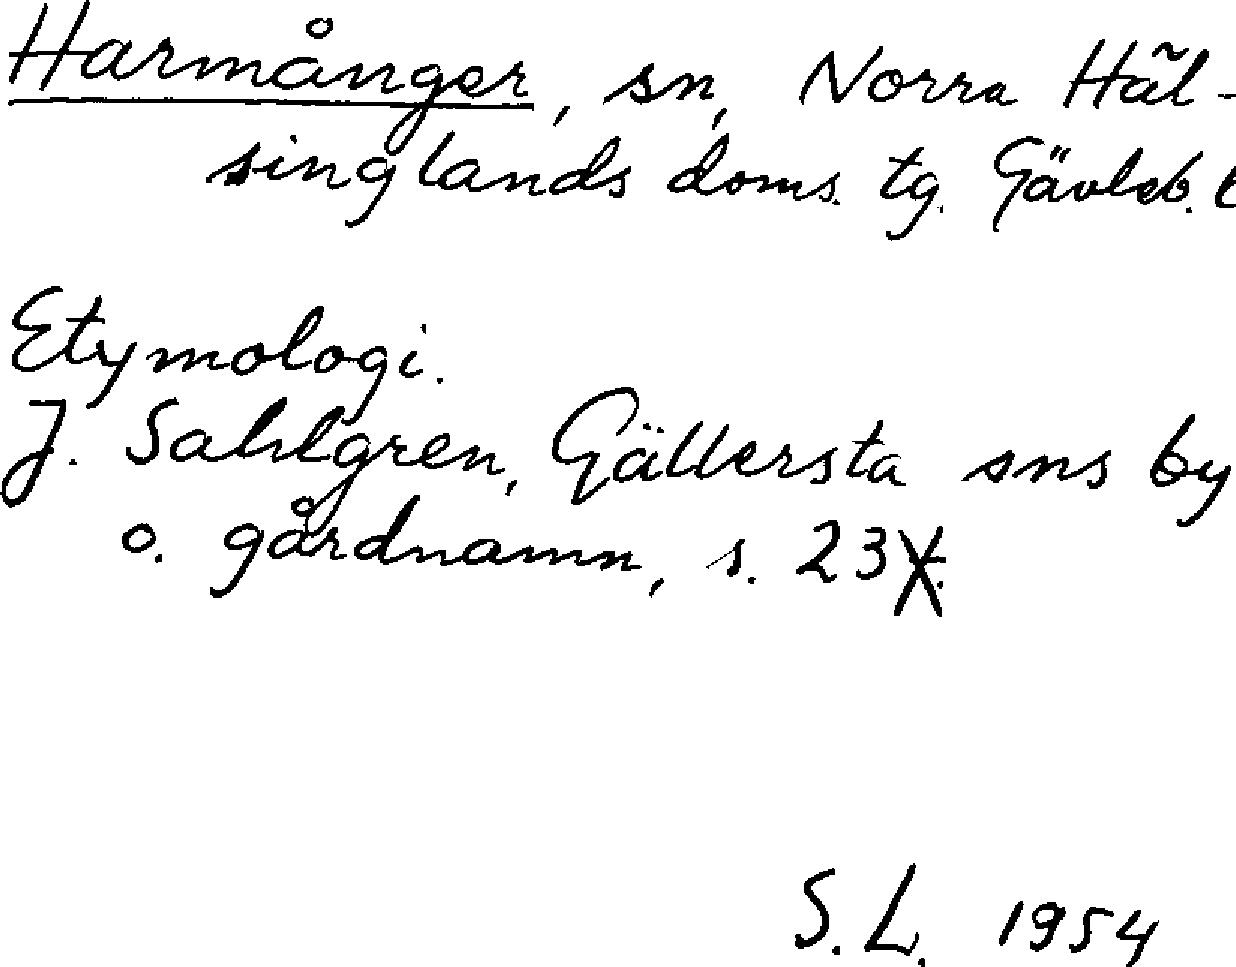 Harmånger, sn, Norra Häl-
singlands doms. tg. Gävleb. l
Etymologi.
J. Sahlgren, Gällersta sns by
o. gårdnamn, s. 23
S. L. 1954